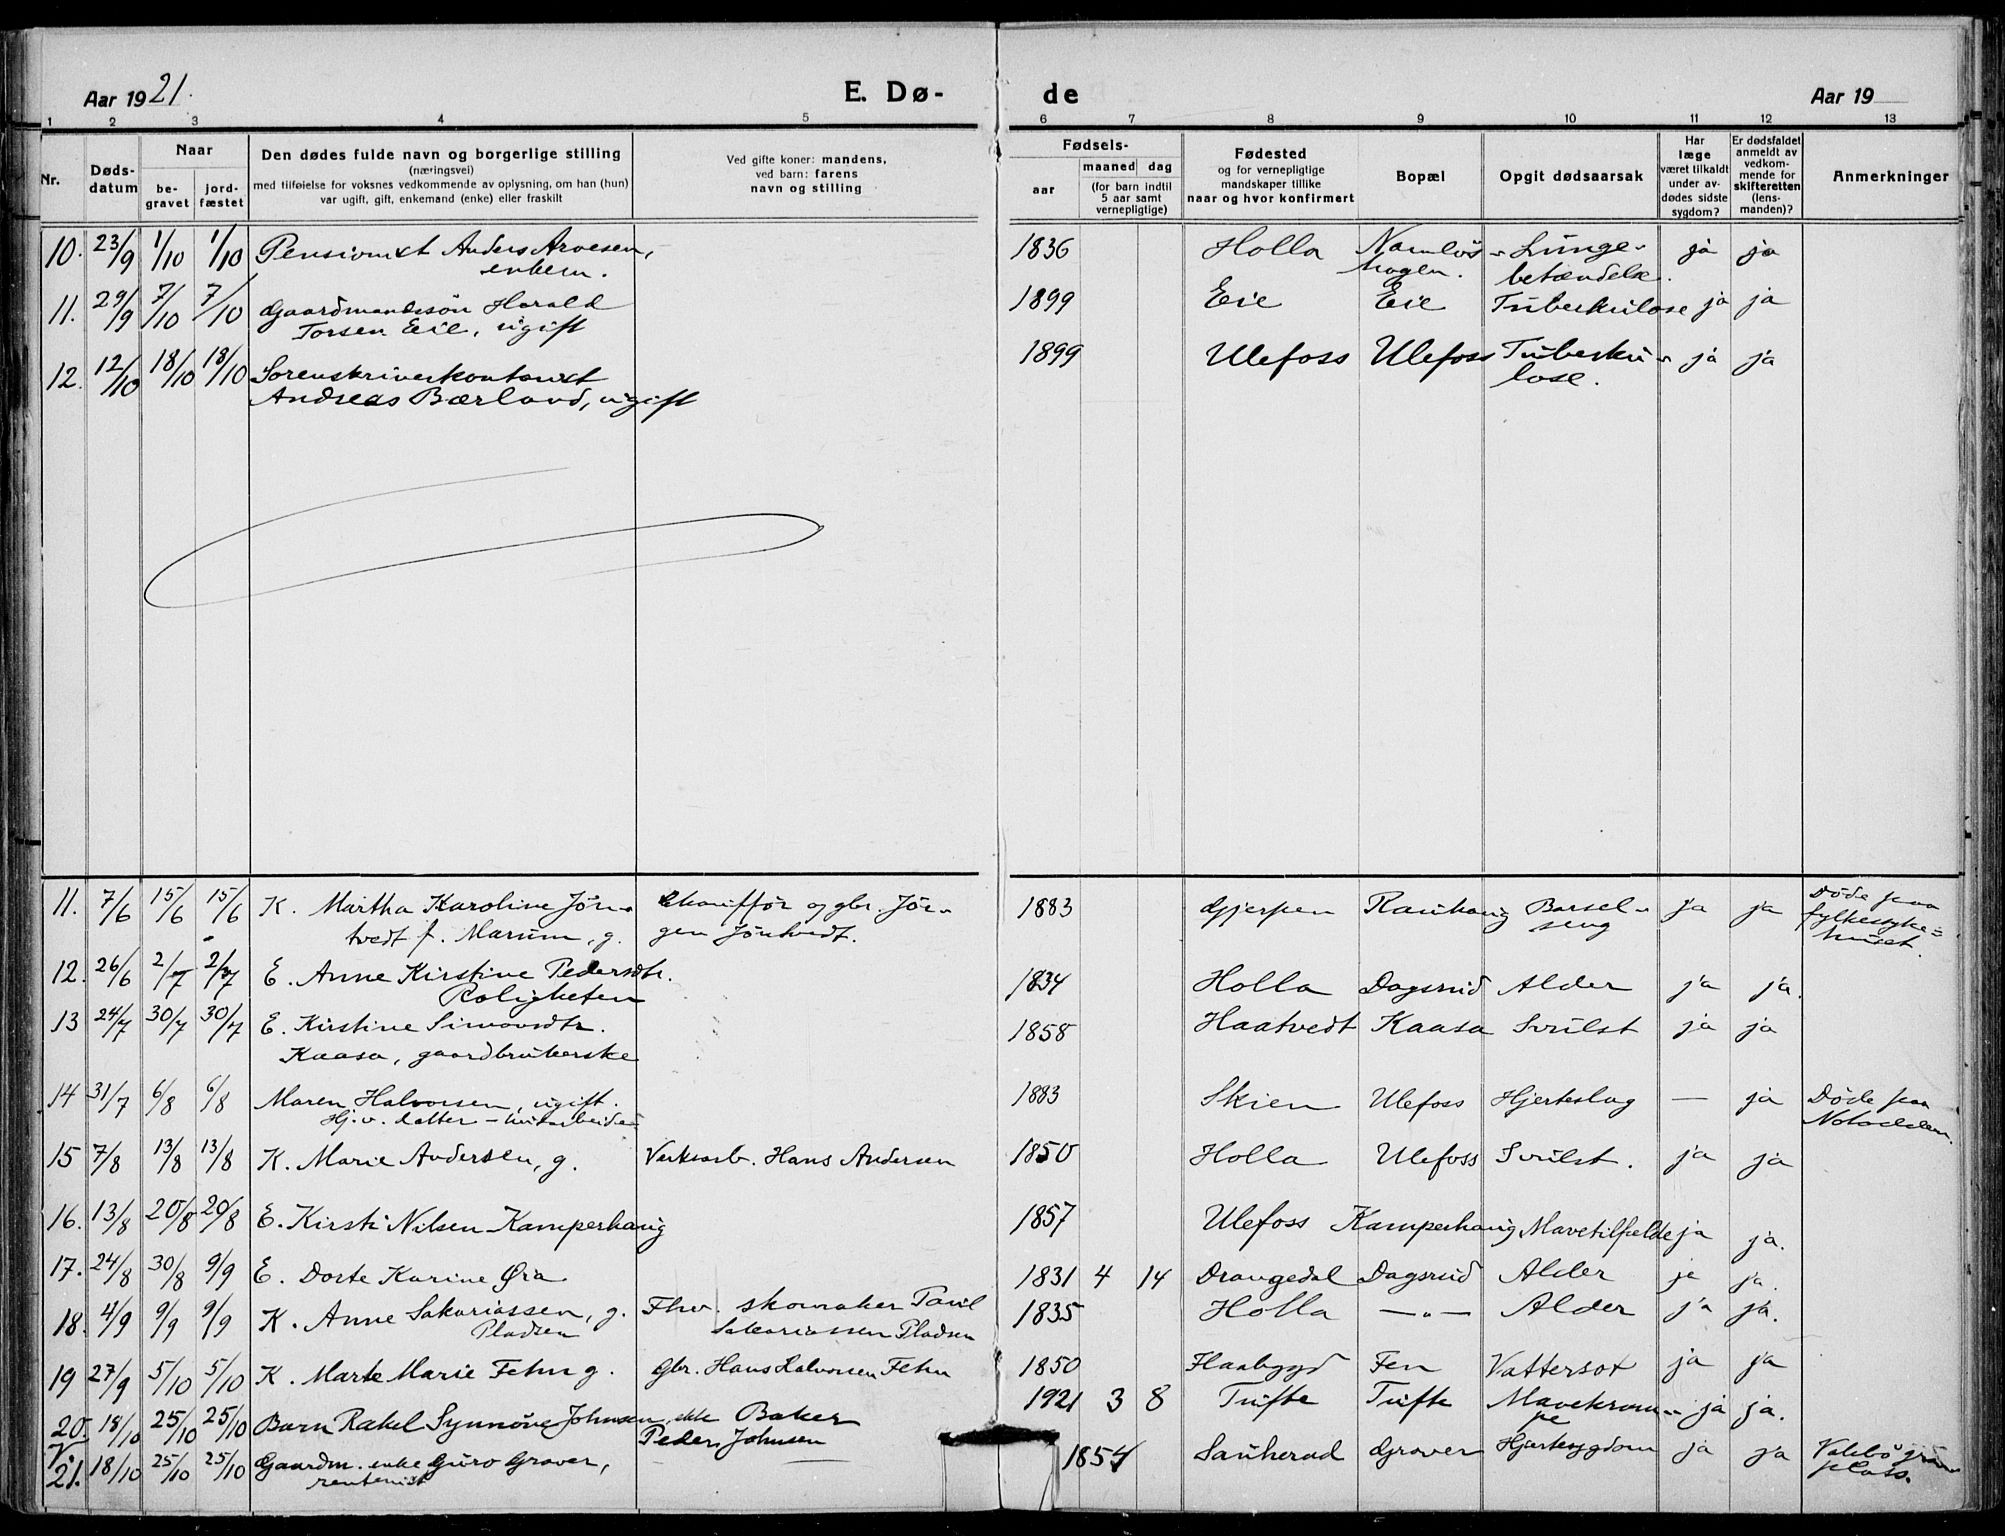 Aar 1921. E. Dø- de Aar 19
1 2 3 4 5 6 7 8 9 10 11 12 13
Nr.
Døds-
datum
Naar
be-
gravet
jord-
fæstet
Den dødes fulde navn og borgerlige stilling
(næringsvei)
med tilføielse for voksnes vedkommende av oplysning, om han (hun)
var ugift, gift, enkemand (enke) eller fraskilt
Ved gifte koner: mandens,
ved barn: farens
navn og stilling
Fødsels-
aar
maaned dag
(for barn indtil
5 aar samt
vernepligtige)
Fødested
og for vernepligtige
mandskaper tillike
naar og hvor konfirmert
Bopæl
Opgit dødsaarsak
Har
læge
været tilkaldt
under av-
dødes sidste
sygdom?
Er dødsfaldet
anmeldt av
vedkom-
mende for
skifteretten
(lens-
manden)?
Anmerkninger
10. 23/9 1/10 1/10 Pensionist Anders Arvesen, 1836 Holla Namløs- Lunge- ja ja
enkem. hagen. betændelse.
11. 29/9 7/10 7/10 Gaardmandssøn Harald 1899 Eie Eie Tuberkulose ja ja
Torsen Eie, ugift
12. 12/10 18/10 18/10 Sorenskriverkontorist 1899 Ulefoss Ulefoss Tuberku- ja ja
Andreas Bærland, ugift lose.
11. 7/6 15/6 15/6 K. Martha Karoline Jøn- Chauffør og gbr. Jør- 1883 Gjerpen Rauhaug Barsel- ja ja Døde paa
tvedt f. Marum, g. gen Jøntvedt. seng fylkessyke=
huset.
12. 26/6 2/7 2/7 E. Anne Kirstine Pedersdtr. 1834 Holla Dagsrud Alder ja ja.
Roligheten
13 24/7 30/7 30/7 E. Kirstine Simonsdtr. 1858 Haatvedt Kaasa Svulst ja ja
Kaasa, gaardbrukerske
14 31/7 6/8 6/8 Maren Halvorsen, ugift. 1883 Skien Ulefoss Hjerteslag — ja Døde paa
Hj.v. datter - Notodden.
15 7/8 13/8 13/8 K. Marie Andersen, g. Verksarb. Hans Andersen 1850 Holla Ulefoss Svulst. ja ja
16. 13/8 20/8 20/8 E. Kirsti Nilsen Kamperhaug 1857 Ulefoss Kamperhaug Mavetilfælde ja ja.
17. 24/8 30/8 9/9 E. Dorte Karine Øra 1831 4 14 Drangedal Dagsrud Alder ja ja.
18. 4/9 9/9 9/9 K. Anne Sakariassen, g. Fhv. skomaker Paul 1835 Holla —"— Alder ja ja.
Pladsen Sakariassen Pladsen
19 27/9 5/10 5/10 K. Marte Marie Fehn g. Gbr. Hans Halvorsen Fehn 1850 Flaabygd Fen Vattersot ja ja
20. 18/10 25/10 25/10 Barn Rakel Synnøve Johnsen, ekte Baker 1921 3 8 Tufte Tufte Mavekram- ja ja.
Peder Johnsen pe
V. 21. 18/10 25/10 25/10 Gaardm. enke Guro Graver, 1854 Sauherad Graver Hjertesygdom ja ja
rentenist plass.